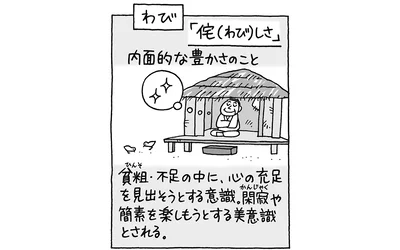 わび
「侘(わび)しさ」
内面的な豊かさのこと
貧粗・不足の中に、心の充足
を見出そうとする意識。閑寂や
簡素を楽しもうとする美意識
とされる。